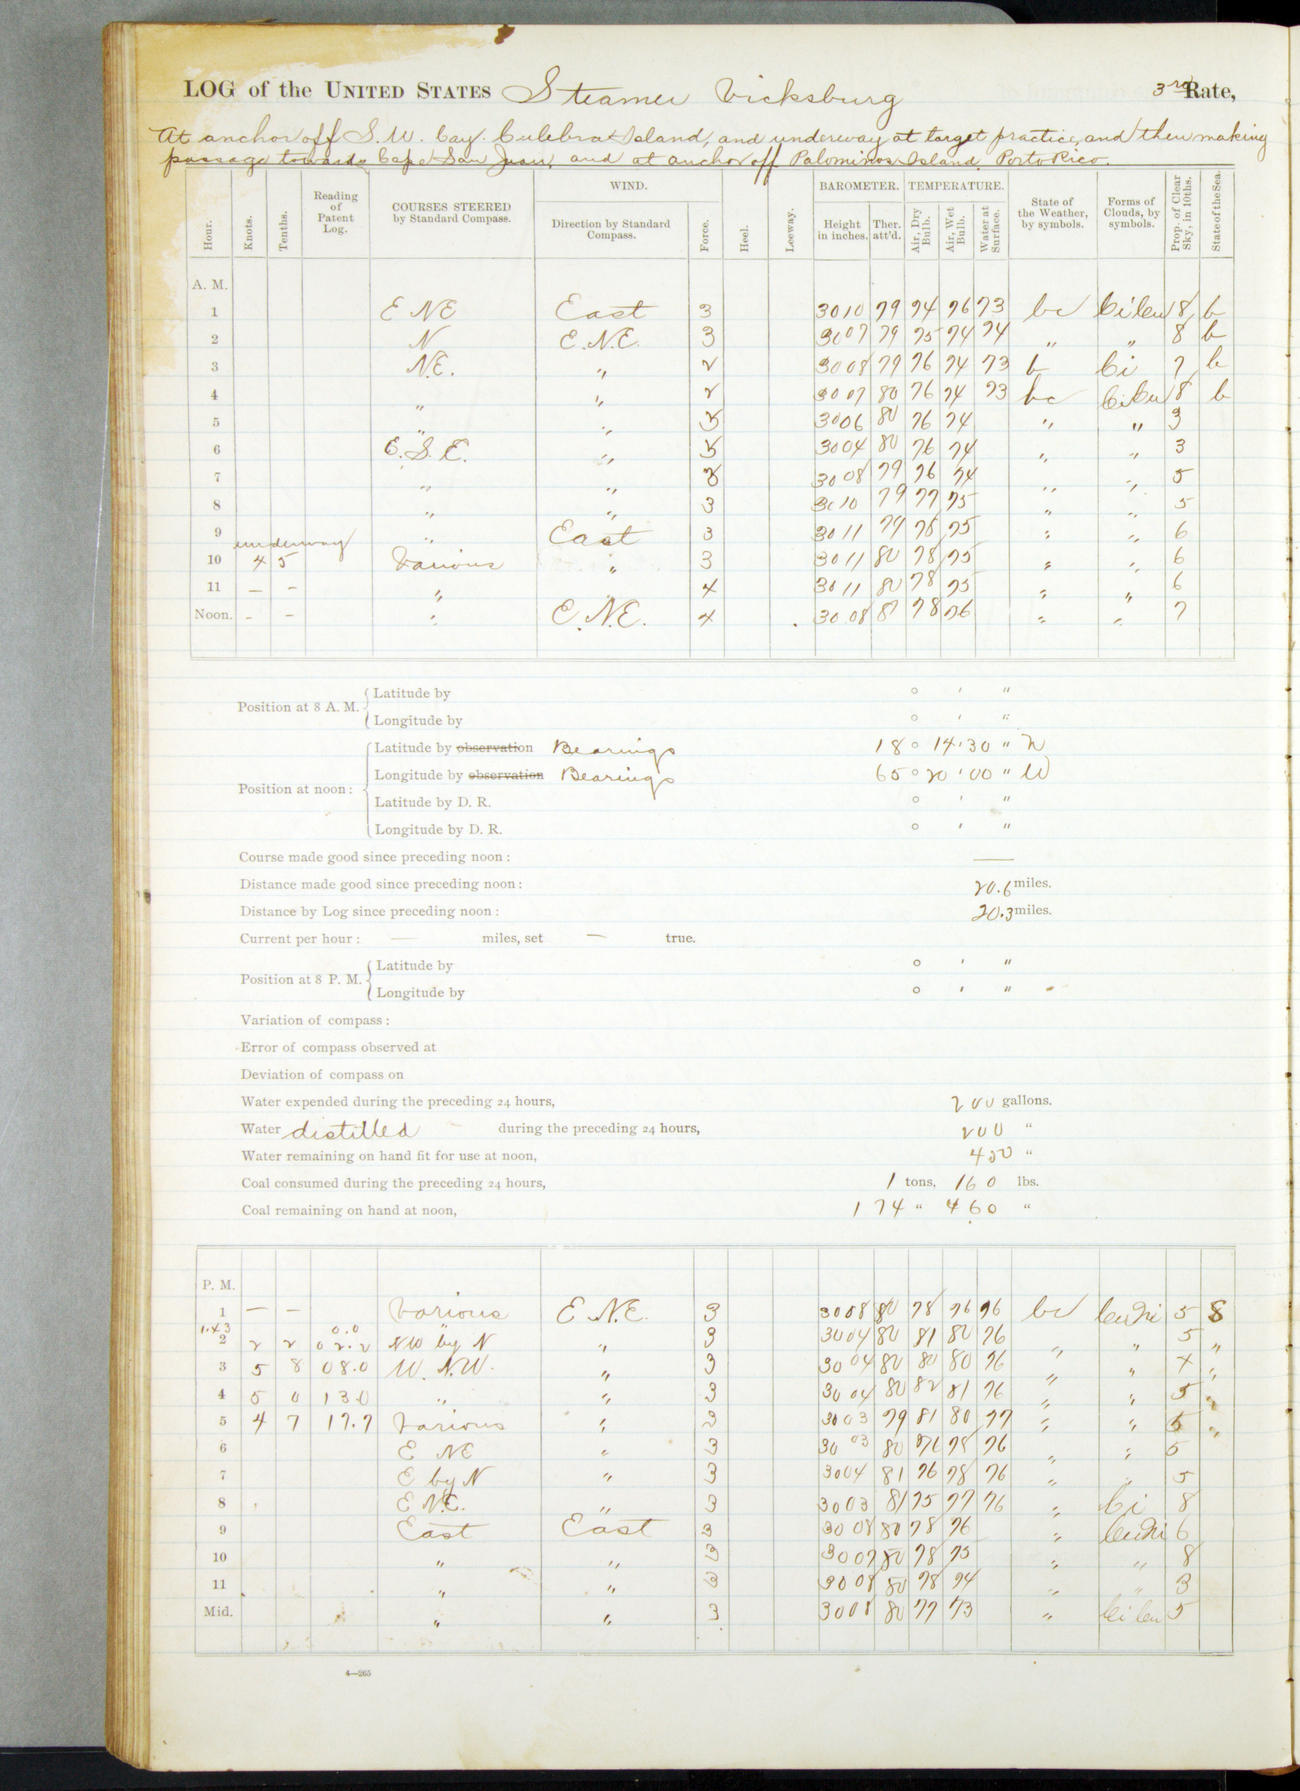 LOG of the UNITED STATES Steamer Vicksburg 3rd Rate,
At anchor off S.W. Cay. Culebra Island, and underway at target practice, and then making
passage towards Cape San Juan, and at anchor off Palominos Island Porto Rico.
Hour. Knots. Tenths. Reading of Patent Log. COURSES STEERED by Standard Compass. WIND. Direction by Standard Compass. Force. Heel. Leeway. BAROMETER. Height in inches. Ther. att'd. TEMPERATURE. Air, Dry Bulb. Air, Wet Bulb. Water at Surface. State of the Weather, by symbols. Forms of Clouds, by symbols. Prop. of Clear Sky, in 10ths. State of the Sea.
A. M.
1 E NE East 3 3010 79 74 76 73 bc Ci Cu 8 b
2 N E.N.E. 3 3007 79 75 74 74 " " 8 b
3 N.E. " 2 3008 79 76 74 73 b Ci 7 b
4 " " 2 3007 80 76 74 73 bc Ci Cu 8 b
5 " " 3006 80 76 74 " " 3
6 E.S.E. " 3004 80 76 74 " " 3
7 " " 3008 79 76 74 " " 5
8 " " 3 3010 79 77 75 " " 5
9 underway " East 3 3011 79 78 75 " " 6
10 4 5 Various " 3 3011 80 78 75 " " 6
11 — – " 4 3011 80 78 75 " " 6
Noon. - – " E.N.E. 4 30.08 81 78 76 " " 7
Position at 8 A. M. Latitude by ° ' "
Longitude by ° ' "
Position at noon: Latitude by observation Bearings 18° 14' 30" N
Longitude by observation Bearings 65° 20' 00" W
Latitude by D. R. ° ' "
Longitude by D. R. ° ' "
Course made good since preceding noon: —
Distance made good since preceding noon: 20.6 miles.
Distance by Log since preceding noon: 20.3 miles.
Current per hour: — miles, set — true.
Position at 8 P. M. Latitude by ° ' "
Longitude by ° ' "
Variation of compass:
Error of compass observed at
Deviation of compass on
Water expended during the preceding 24 hours, 200 gallons.
Water distilled during the preceding 24 hours, 200 "
Water remaining on hand fit for use at noon, 450 "
Coal consumed during the preceding 24 hours, 1 tons, 160 lbs.
Coal remaining on hand at noon, 174 " 460 "
P. M.
1 — – Various E N.E. 3 3008 80 78 76 76 bc Cu Ni 5 S
1.43 0.0
2 2 2 02.2 NW by N " 3 3004 80 81 80 76 " " 5 "
3 5 8 08.0 W. N.W. " 3 3004 80 80 80 76 " " 4 "
4 5 0 13.0 " " 3 3004 80 82 81 76 " " 5 "
5 4 7 17.7 Various " 3 3003 79 81 80 77 " " 5 "
6 E NE " 3 3003 80 76 78 76 " " 5
7 E by N " 3 3004 81 76 78 76 " " 5
8 E N.E. " 3 3003 81 75 77 76 " Ci 8
9 East East 3 3008 80 78 76 " Cu Ni 6
10 " " 3 3007 80 78 75 " " 8
11 " " 3 3008 80 78 74 " " 3
Mid. " " 3 3008 80 77 73 " Ci Cu 5
4—265